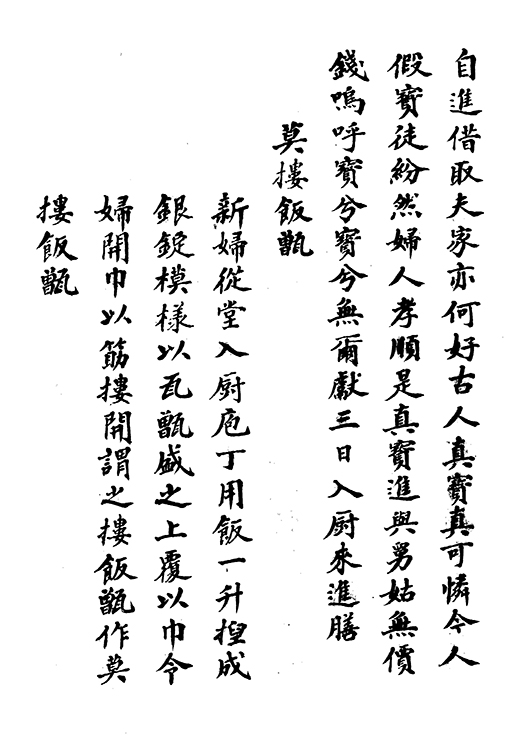 自進借取夫家亦何好古人真寶真可憐今人
假寶徒紛然婦人孝順是真寶進與舅姑無價
錢嗚呼寶兮寶兮無爾獻三日入厨來進膳
莫摟飯甑
新婦從堂入厨庖丁用飯一升揑成
銀錠模樣以瓦甑盛之上覆以巾令
婦開巾以筯摟開謂之摟飯甑作莫
摟飯甑